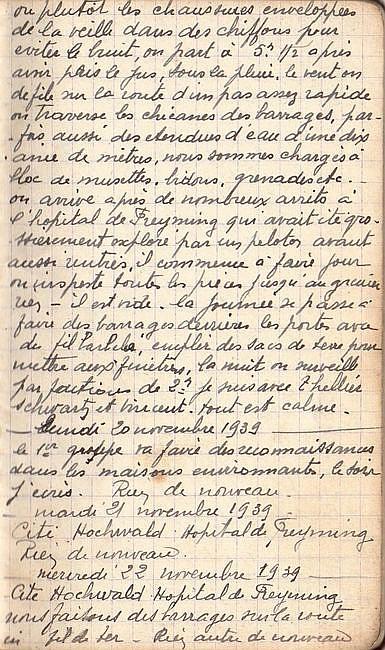 ou plutôt les chaussures enveloppées
de la veille dans des chiffons pour
eviter le bruit, on part à 5h 1/2 après
avoir pris le jus, sous la pluie, le vent on
defile sur la route d'un pas assez rapide
on traverse les chicanes des barrages, par-
-fois aussi des etendues d'eau d'une dix
aine de mètres, nous sommes chargés à
bloc de musettes, bidons, grenades etc...
on arrive après de nombreux arrêts à
l'hopital de Freyming qui avait été gros-
sierement exploré par un peloton avant
aussi rentrés, il commence à faire jour
on inspecte toutes les pieces jusqu'au grenier
rien - il est vide. la journée se passe à
faire des barrages derrière les portes avec
du fil, empiler des sacs de terre pour
mettre aux fenetres, la nuit on surveille
par factions de 2h je suis avec Thellier
Schwartz et Vincent. tout est calme.
Lundi 20 novembre 1939
le 1er groupe va faire des reconnaissances
dans les maisons environnantes, le soir
j'ecris. Rien de nouveau.
mardi 21 novembre 1939 -
Cité Hochwald Hopital de Freyming
Rien de nouveau.
mercredi 22 novembre 1939
Cité Hochwald Hopital de Freyming
nous faisons des barrages sur la route
en fil de fer - Rien autre de nouveau